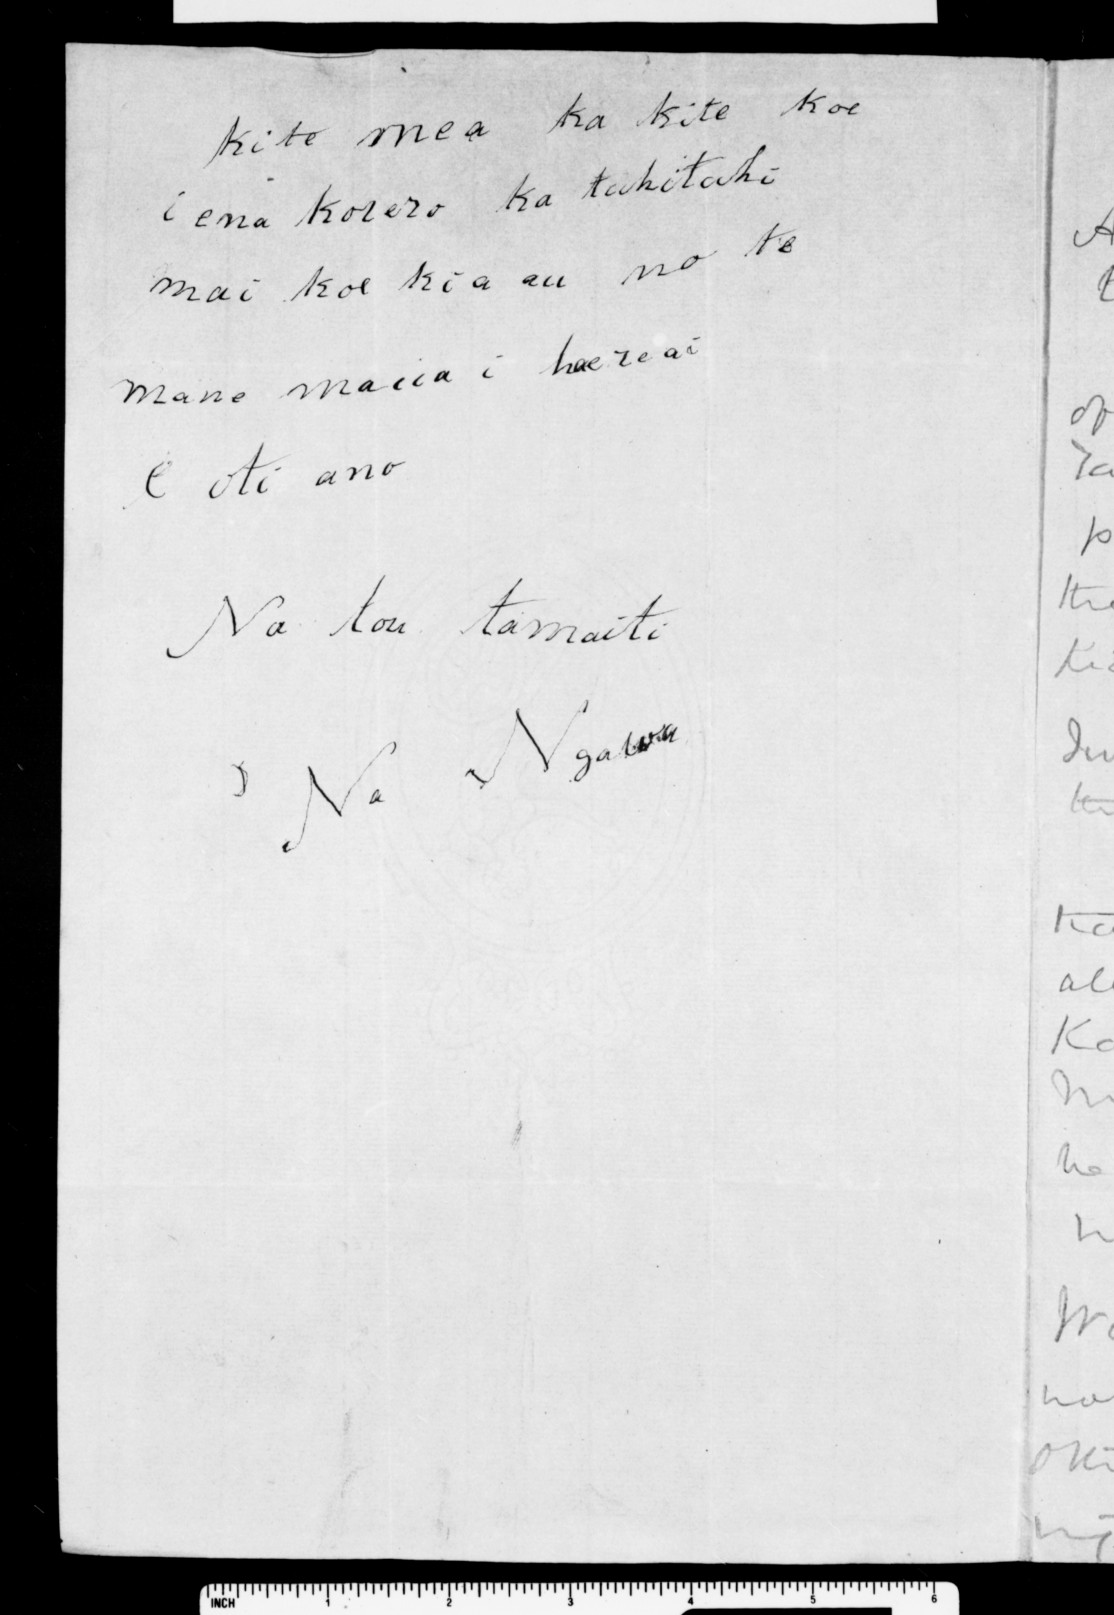 kite mea ka kite koe
i ena korero ka tuhituhi
mai koe kia au no te
mane maua i haereai
e oti ano
Na tou tamaiti
Na Ngawa
A
of
Ta
p
the
kia
ka
Ko
he
INCH 1 2 3 4 5 6